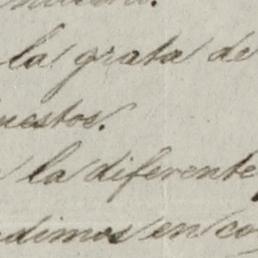 la grata de
uestos.
la diferente
dimos en co